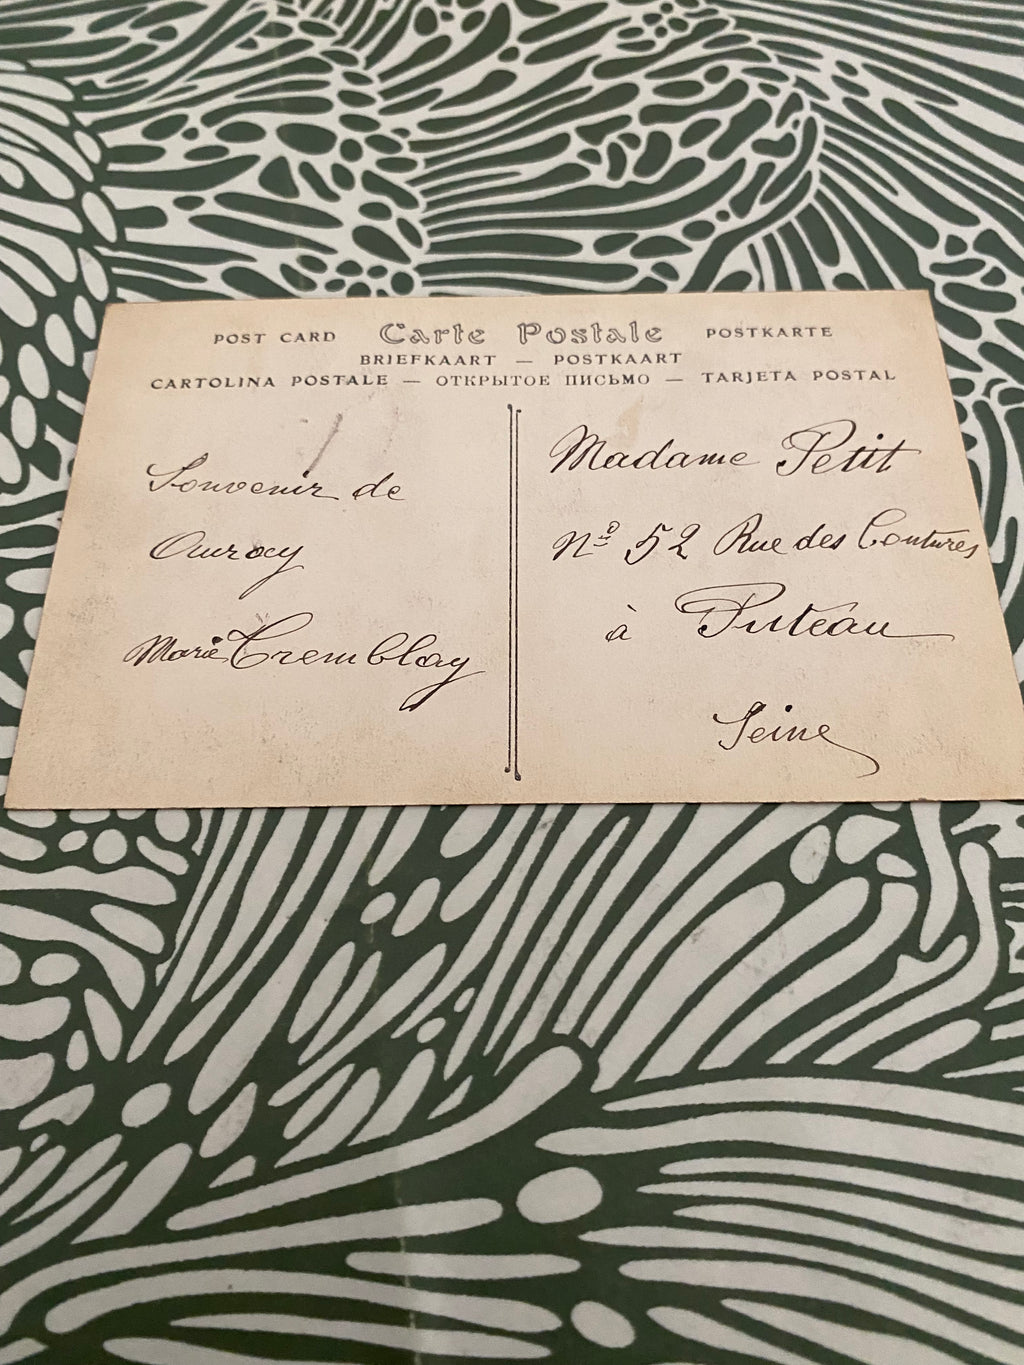 POST CARD Carte Postale POSTKARTE
BRIEFKAART — POSTKAART
CARTOLINA POSTALE — ОТКРЫТОЕ ПИСЬМО — TARJETA POSTAL
Souvenir de
Ourocy
Marie Tremblay
Madame Petit
Nº 52 Rue des Coutures
à Puteau
Seine